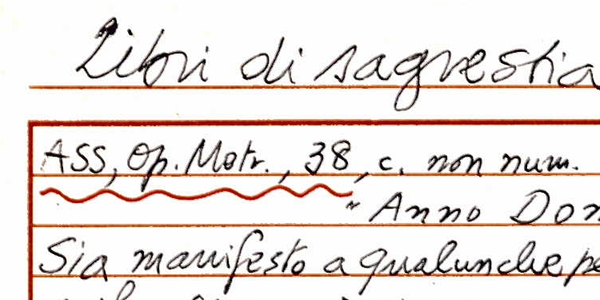 Libri di sagrestia
ASS, Op. Metr., 38, c. non num.
"Anno Dom
Sia manifesto a qualunche pe